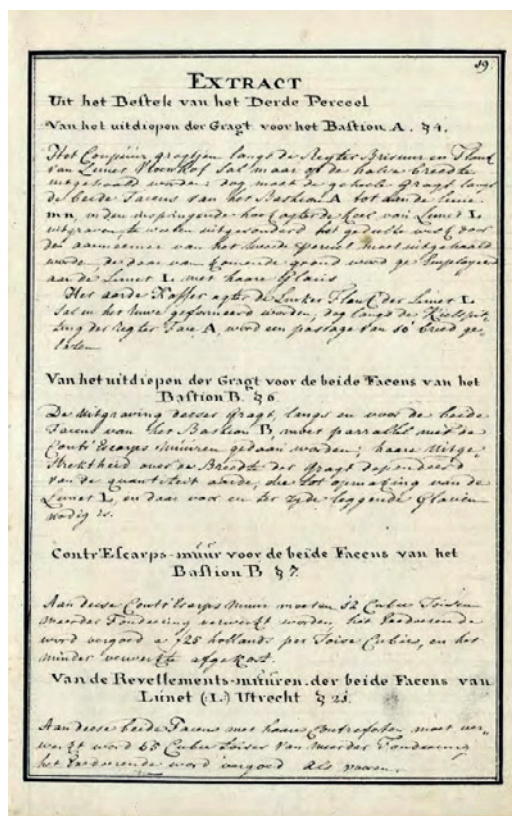 19.
EXTRACT
Uit het Bestek van het Derde Perceel
Van het uitdiepen der Gragt voor het Bastion A. § 4.
Het Coupüre gragtjen langs de Regter Brisuur en Flank
van Lunet Hoonhof sal maar op de halve breedte
uitgehaald worden; dog moet de geheele Gragt langs
de beide Facens van het Bastion A tot aan de linie
mn, in den inspringende hoek agter de Keel van Lunet L
uitgraven, te weeten uitgezonderd het gedeelte west door
den aanneemer van het tweede perceel moet uitgehaald
worden, de daar van komende grond word ge Employeerd
aan de Lunet L met haare Glacis
Het aarde Koffer agter de Linker Flank der Lunet L
Sal en het ruwe geformeerd worden, dog langs de
der Regter Face A, word een passage van 10' breed ge-
laten
Van het uitdiepen der Gragt voor de beide Facens van het
Bastion B. § 6.
De uitgraving deeser Gragt, langs en voor de beide
Facens van het Bastion B, moet parrallel met de
Contr'Escarps Muuren gedaan worden; haare uitge-
strektheid over de Breedte der Gragt dependeerd
van de quantiteit aarde, die tot opmaking van de
Lunet L, en daar voor en ter zyde leggende Glacien
nodig is.
Contr'Escarps-müür voor de beide Facens van het
Bastion B § 7.
Aan deese Contr'Escarps Muur moeten 52 Cubic Toisen
meerder Fondeering verwerkt worden, het
word vergoed a ƒ25 hollands per Toise Cubicq, en het
minder verwerkte afgekort.
Van de Revettements-müüren der beide Facens van
Lünet (:L:) Utrecht § 21.
Aan deese beide Facens met haare Contreforten moet ver-
werkt word 65 Cubic Toisen van meerder Fondeering
het word vergoed als vooren.